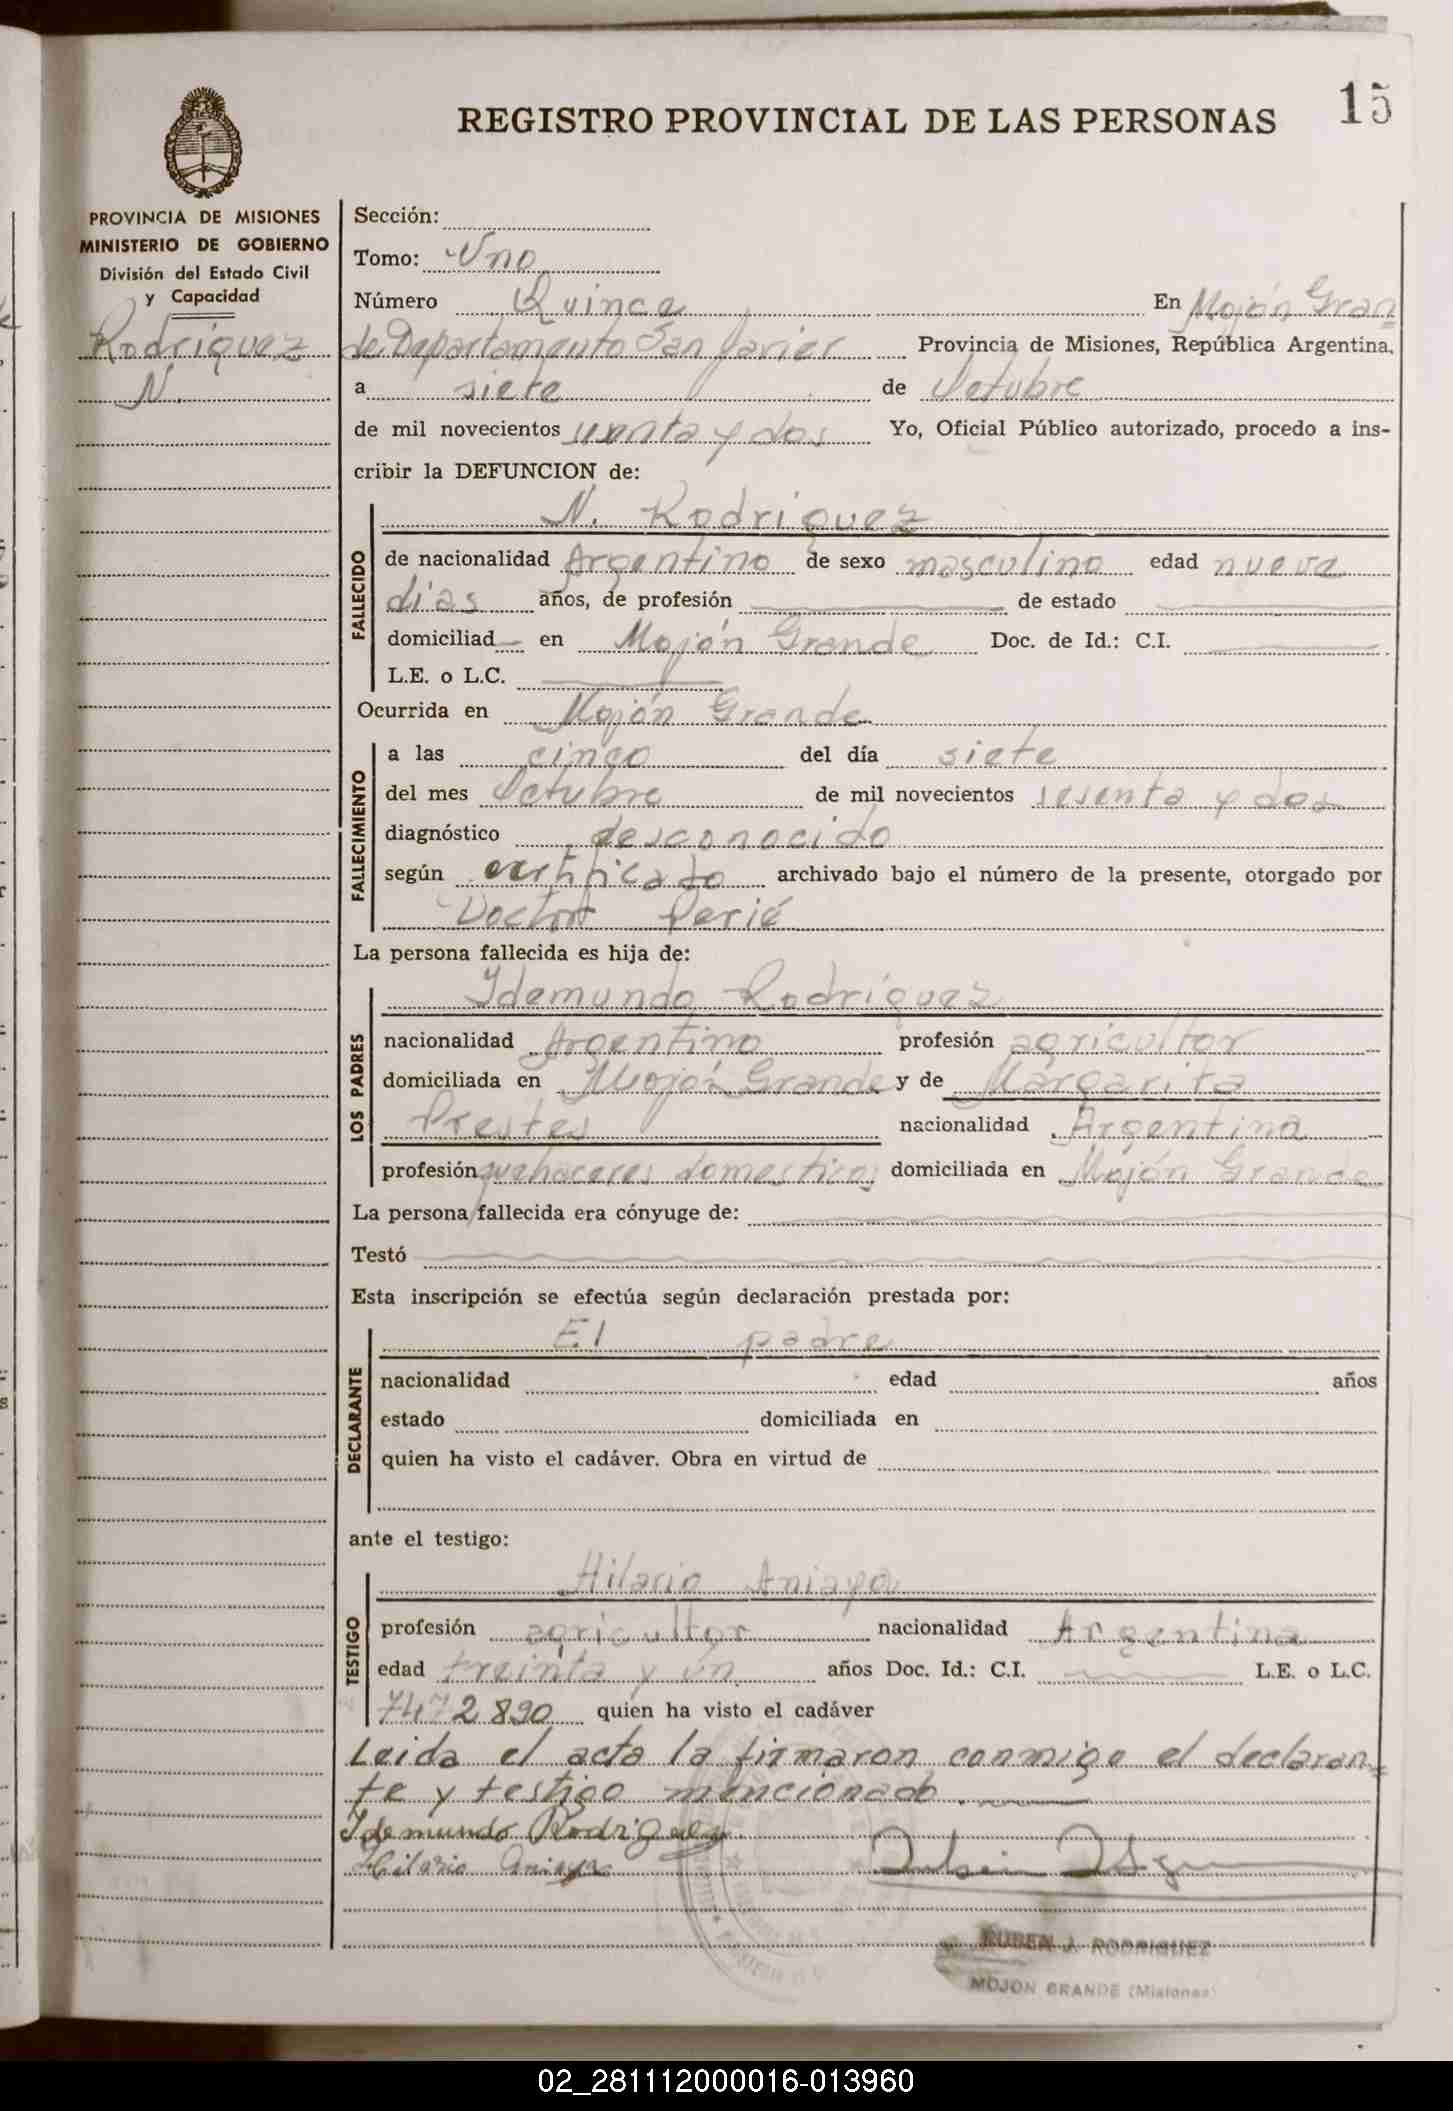 15
REGISTRO PROVINCIAL DE LAS PERSONAS
PROVINCIA DE MISIONES
MINISTERIO DE GOBIERNO
División del Estado Civil
y Capacidad
Rodriguez
N.
Sección:
Tomo: Uno
Número Quince En Mojón Gran=
de Departamento San Javier Provincia de Misiones, República Argentina,
a siete de Octubre
de mil novecientos sesenta y dos Yo, Oficial Público autorizado, procedo a ins-
cribir la DEFUNCION de:
FALLECIDO
N. Rodriguez
de nacionalidad Argentino de sexo masculino edad nueve
días años, de profesión de estado
domiciliad en Mojón Grande Doc. de Id.: C.I.
L.E. o L.C.
Ocurrida en Mojón Grande
FALLECIMIENTO
a las cinco del día siete
del mes Octubre de mil novecientos sesenta y dos
diagnóstico desconocido
según certificado archivado bajo el número de la presente, otorgado por
Doctor Perié
La persona fallecida es hija de:
LOS PADRES
Idemundo Rodríguez
nacionalidad Argentino profesión agricultor
domiciliada en Mojón Grande y de Margarita
Prestes nacionalidad Argentina
profesión quehaceres domesticos domiciliada en Mojón Grande
La persona fallecida era cónyuge de:
Testó
Esta inscripción se efectúa según declaración prestada por:
DECLARANTE
El padre
nacionalidad edad años
estado domiciliada en
quien ha visto el cadáver. Obra en virtud de
ante el testigo:
TESTIGO
Hilario Aniaya
profesión agricultor nacionalidad Argentina
edad treinta y un años Doc. Id.: C.I. L.E. o L.C.
7472890 quien ha visto el cadáver
Leida el acta la firmaron conmigo el declaran=
te y testigo mencionado.
Idemundo Rodriguez
Hilario Aniaya
RUBEN J. RODRIGUEZ
MOJON GRANDE (Misiones)
02_281112000016-013960